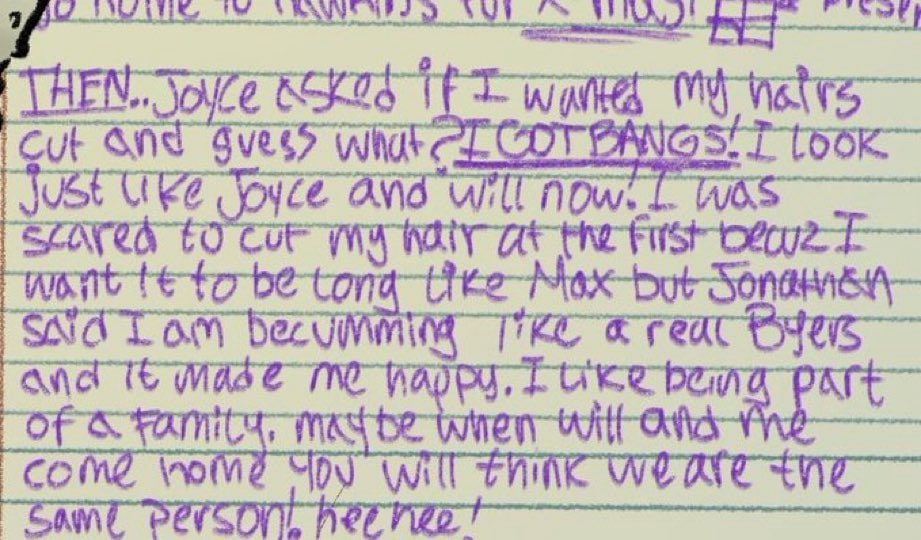 go home to Hawkins for X mas!
THEN.. Joyce asked if I wanted my hairs
cut and guess what? I GOT BANGS! I look
just like Joyce and will now! I was
scared to cut my hair at the first becuz I
want it to be long like Max but Jonathen
said I am becumming like a real Byers
and it made me happy. I like being part
of a family. maybe when will and me
come home you will think we are the
same person! heehee!